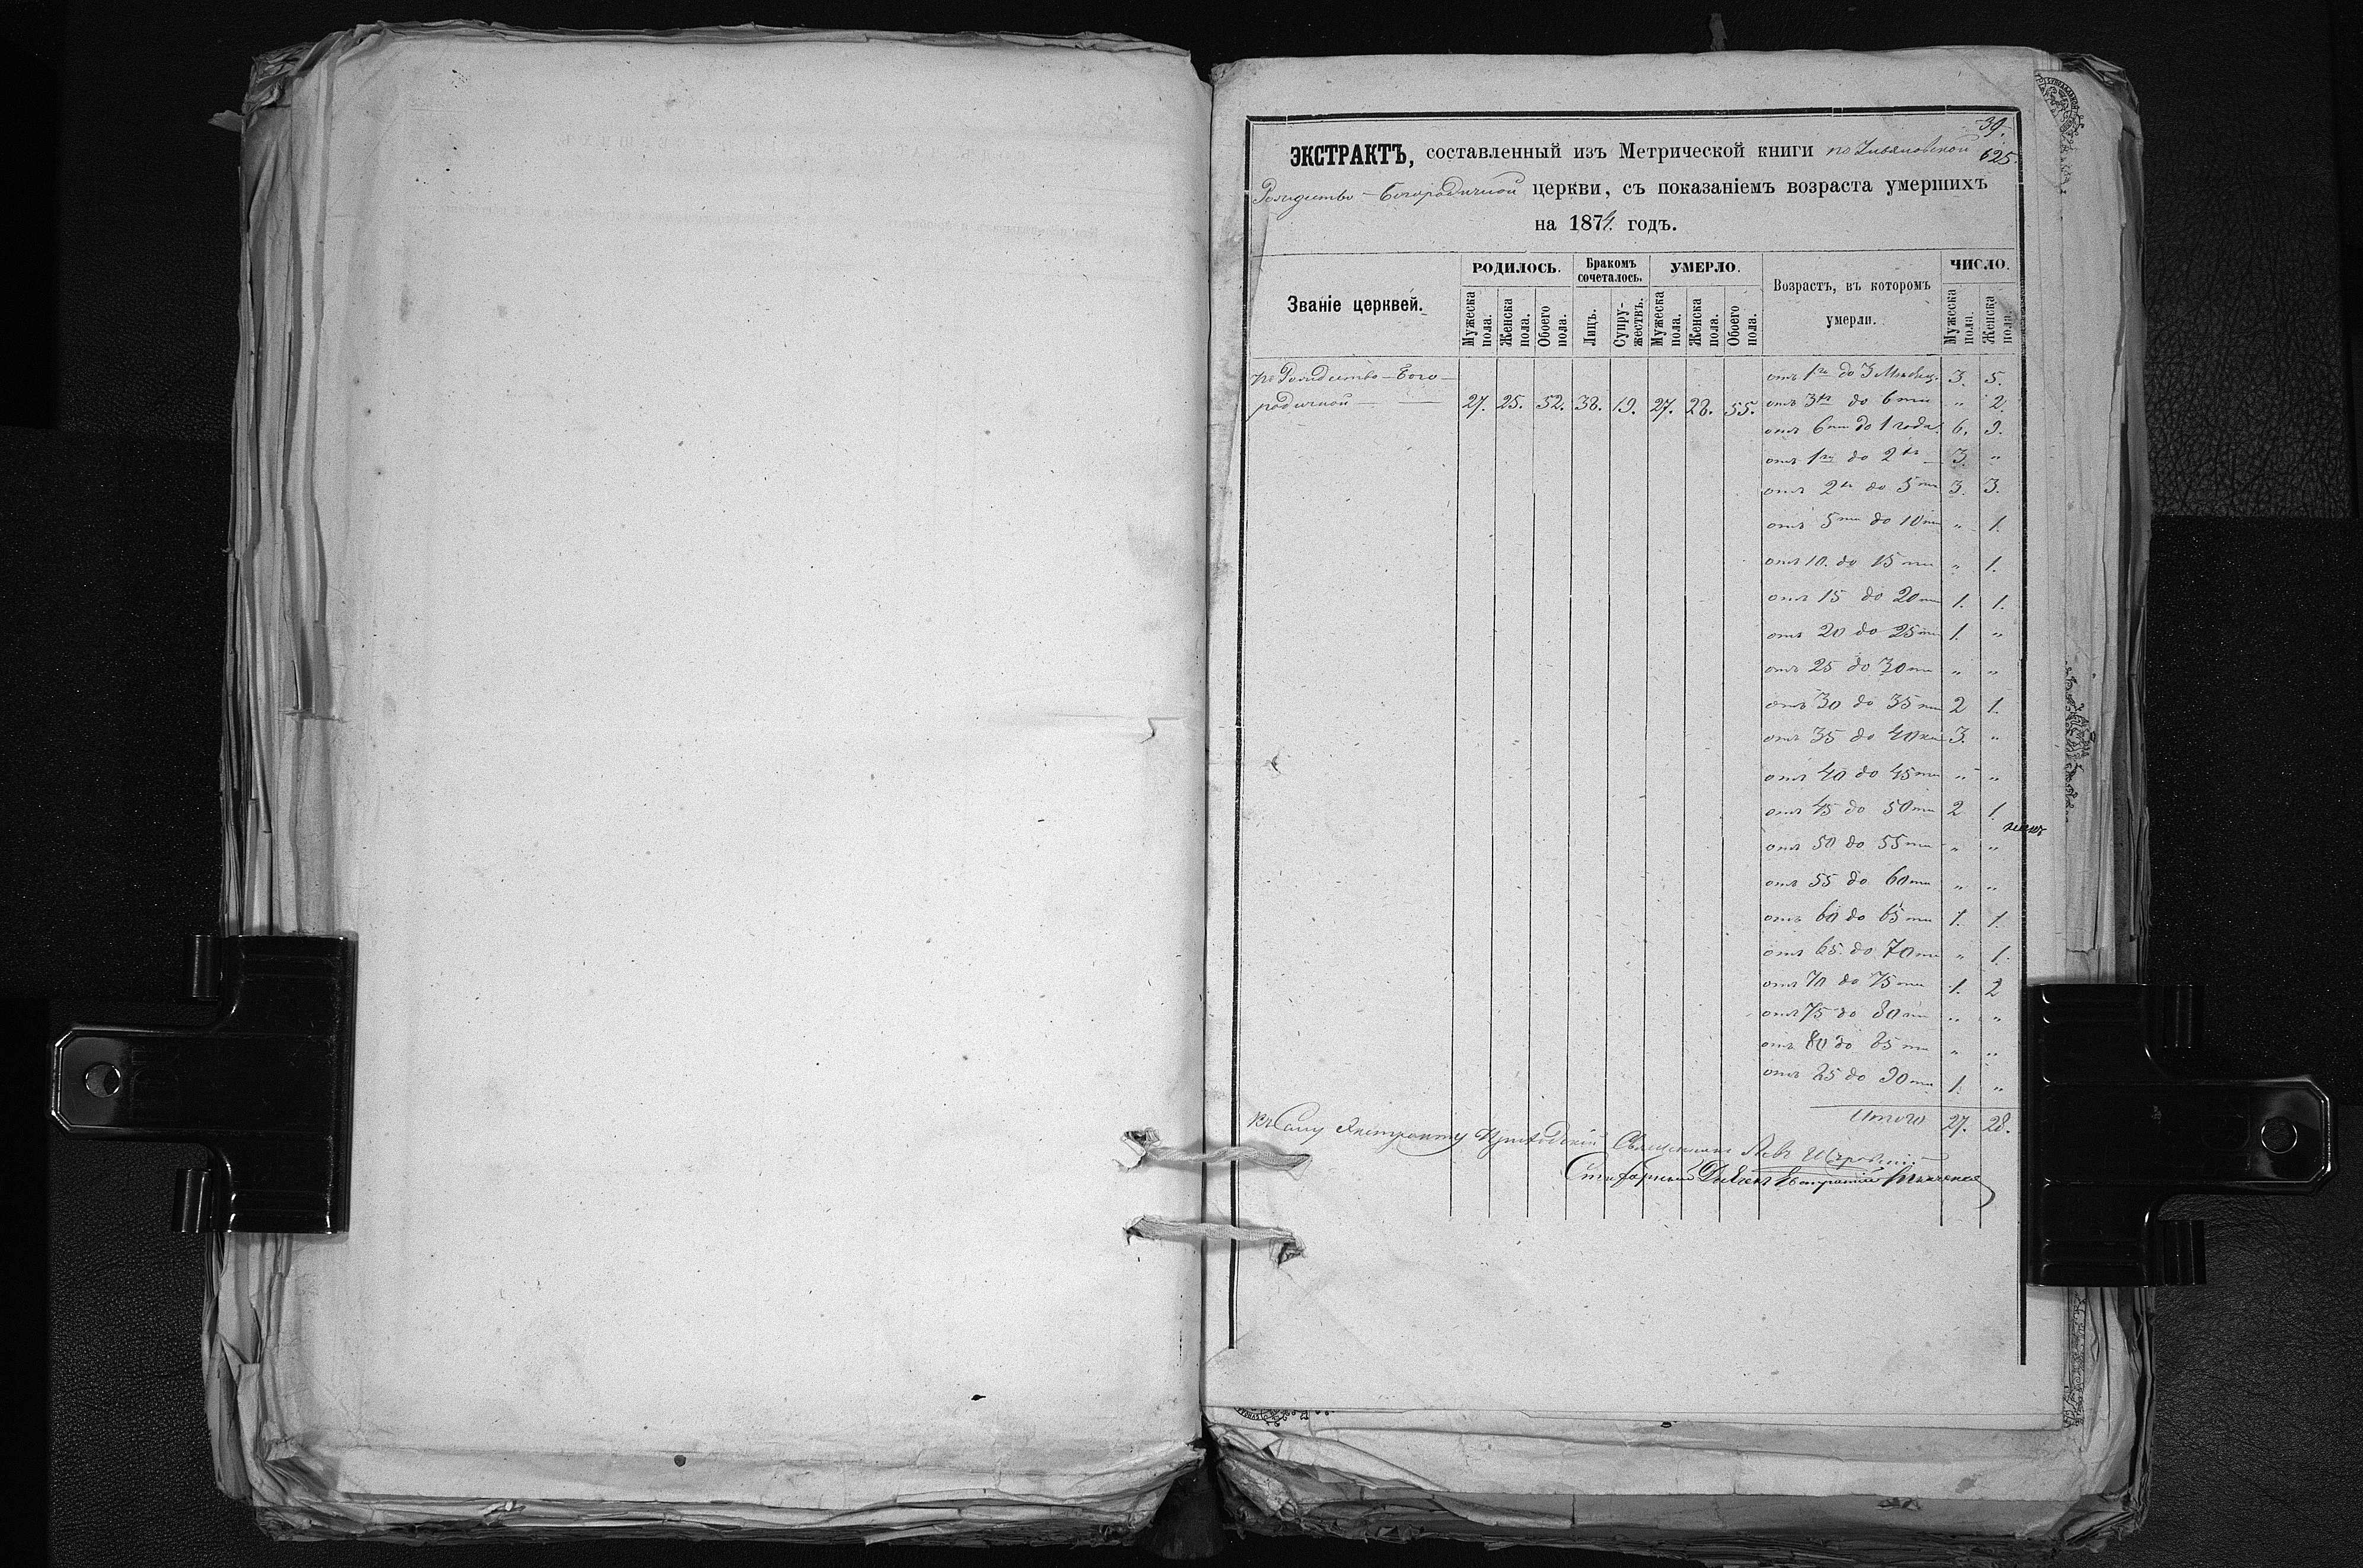 39.
625.
ЭКСТРАКТЪ, составленный изъ Метрической книги по
Рождество-Богородичной церкви, съ показаніемъ возраста умершихъ
на 1874 годъ.
Званіе церквей.
РОДИЛОСЬ.
Мужеска пола.
Женска пола.
Обоего пола.
Бракомъ сочеталось.
Лицъ.
Супружествъ.
УМЕРЛО.
Мужеска пола.
Женска пола.
Обоего пола.
Возрастъ, въ которомъ умерли.
ЧИСЛО.
Мужеска пола.
Женска пола.
по Рождество-Бого-
родичной 27. 25. 52. 38. 19. 27. 28. 55.
отъ 1го до 3 Мѣсяц. 3. 5.
отъ 3хъ до 6ти " 2.
отъ 6ти до 1 года. 6. 9.
отъ 1го до 2хъ 3. "
отъ 2хъ до 5ти 3. 3.
отъ 5ти до 10ти " 1.
отъ 10. до 15ти " 1.
отъ 15 до 20ти 1. 1.
отъ 20 до 25ти 1. "
отъ 25 до 30ти " "
отъ 30 до 35ти 2 1.
отъ 35 до 40ка 3. "
отъ 40 до 45ти " "
отъ 45 до 50ти 2 1.
отъ 50 до 55ти " "
отъ 55 до 60ти " "
отъ 60 до 65ти 1. 1.
отъ 65. до 70ти " 1.
отъ 70 до 75ти 1. 2
отъ 75 до 80ти " "
отъ 80 до 85ти " "
отъ 85 до 90ти 1. "
Итого 27. 28.
Къ Сему Экстракту Приходскій Священникъ Левъ